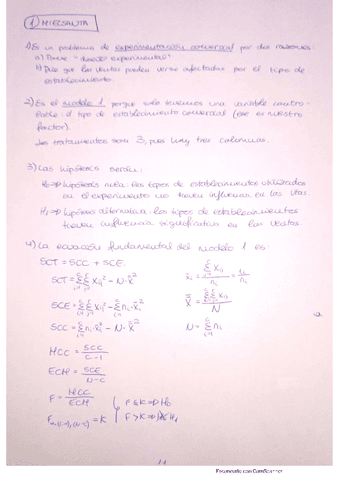 1 MIELSANITA
1) Es un problema de experimentación comercial por dos razones:
a) Pone "diseño experimental"
b) Dice que las ventas pueden verse afectadas por el tipo de
establecimiento.
2) Es el modelo 1 porque solo tenemos una variable contro-
lable: el tipo de establecimiento comercial (ese es nuestro
factor).
Los tratamientos son 3, pues hay tres columnas.
3) Las hipótesis serían:
H₀ → hipótesis nula. Los tipos de establecimientos utilizados
en el experimento no tienen influencia en las vtas
H₁ → hipótesis alternativa. Los tipos de establecimientos
tienen influencia significativa en las ventas.
4) La ecuación fundamental del modelo 1 es:
SCT = SCC + SCE
SCT = ΣΣ Xij² - N · x̄²
SCE = ΣΣ Xij² - Σ ni · x̄i²
SCC = Σ ni · x̄i² - N · x̄²
MCC = SCC / C-1
ECM = SCE / N-C
F = MCC / ECM
Fα,(C-1),(N-C) = K
F ≤ K ⇒ H₀
F > K ⇒ H₁
x̄i = Σ Xij / ni = ti / ni
x̄ = ΣΣ Xij / N
N = Σ ni
Escaneado con CamScanner